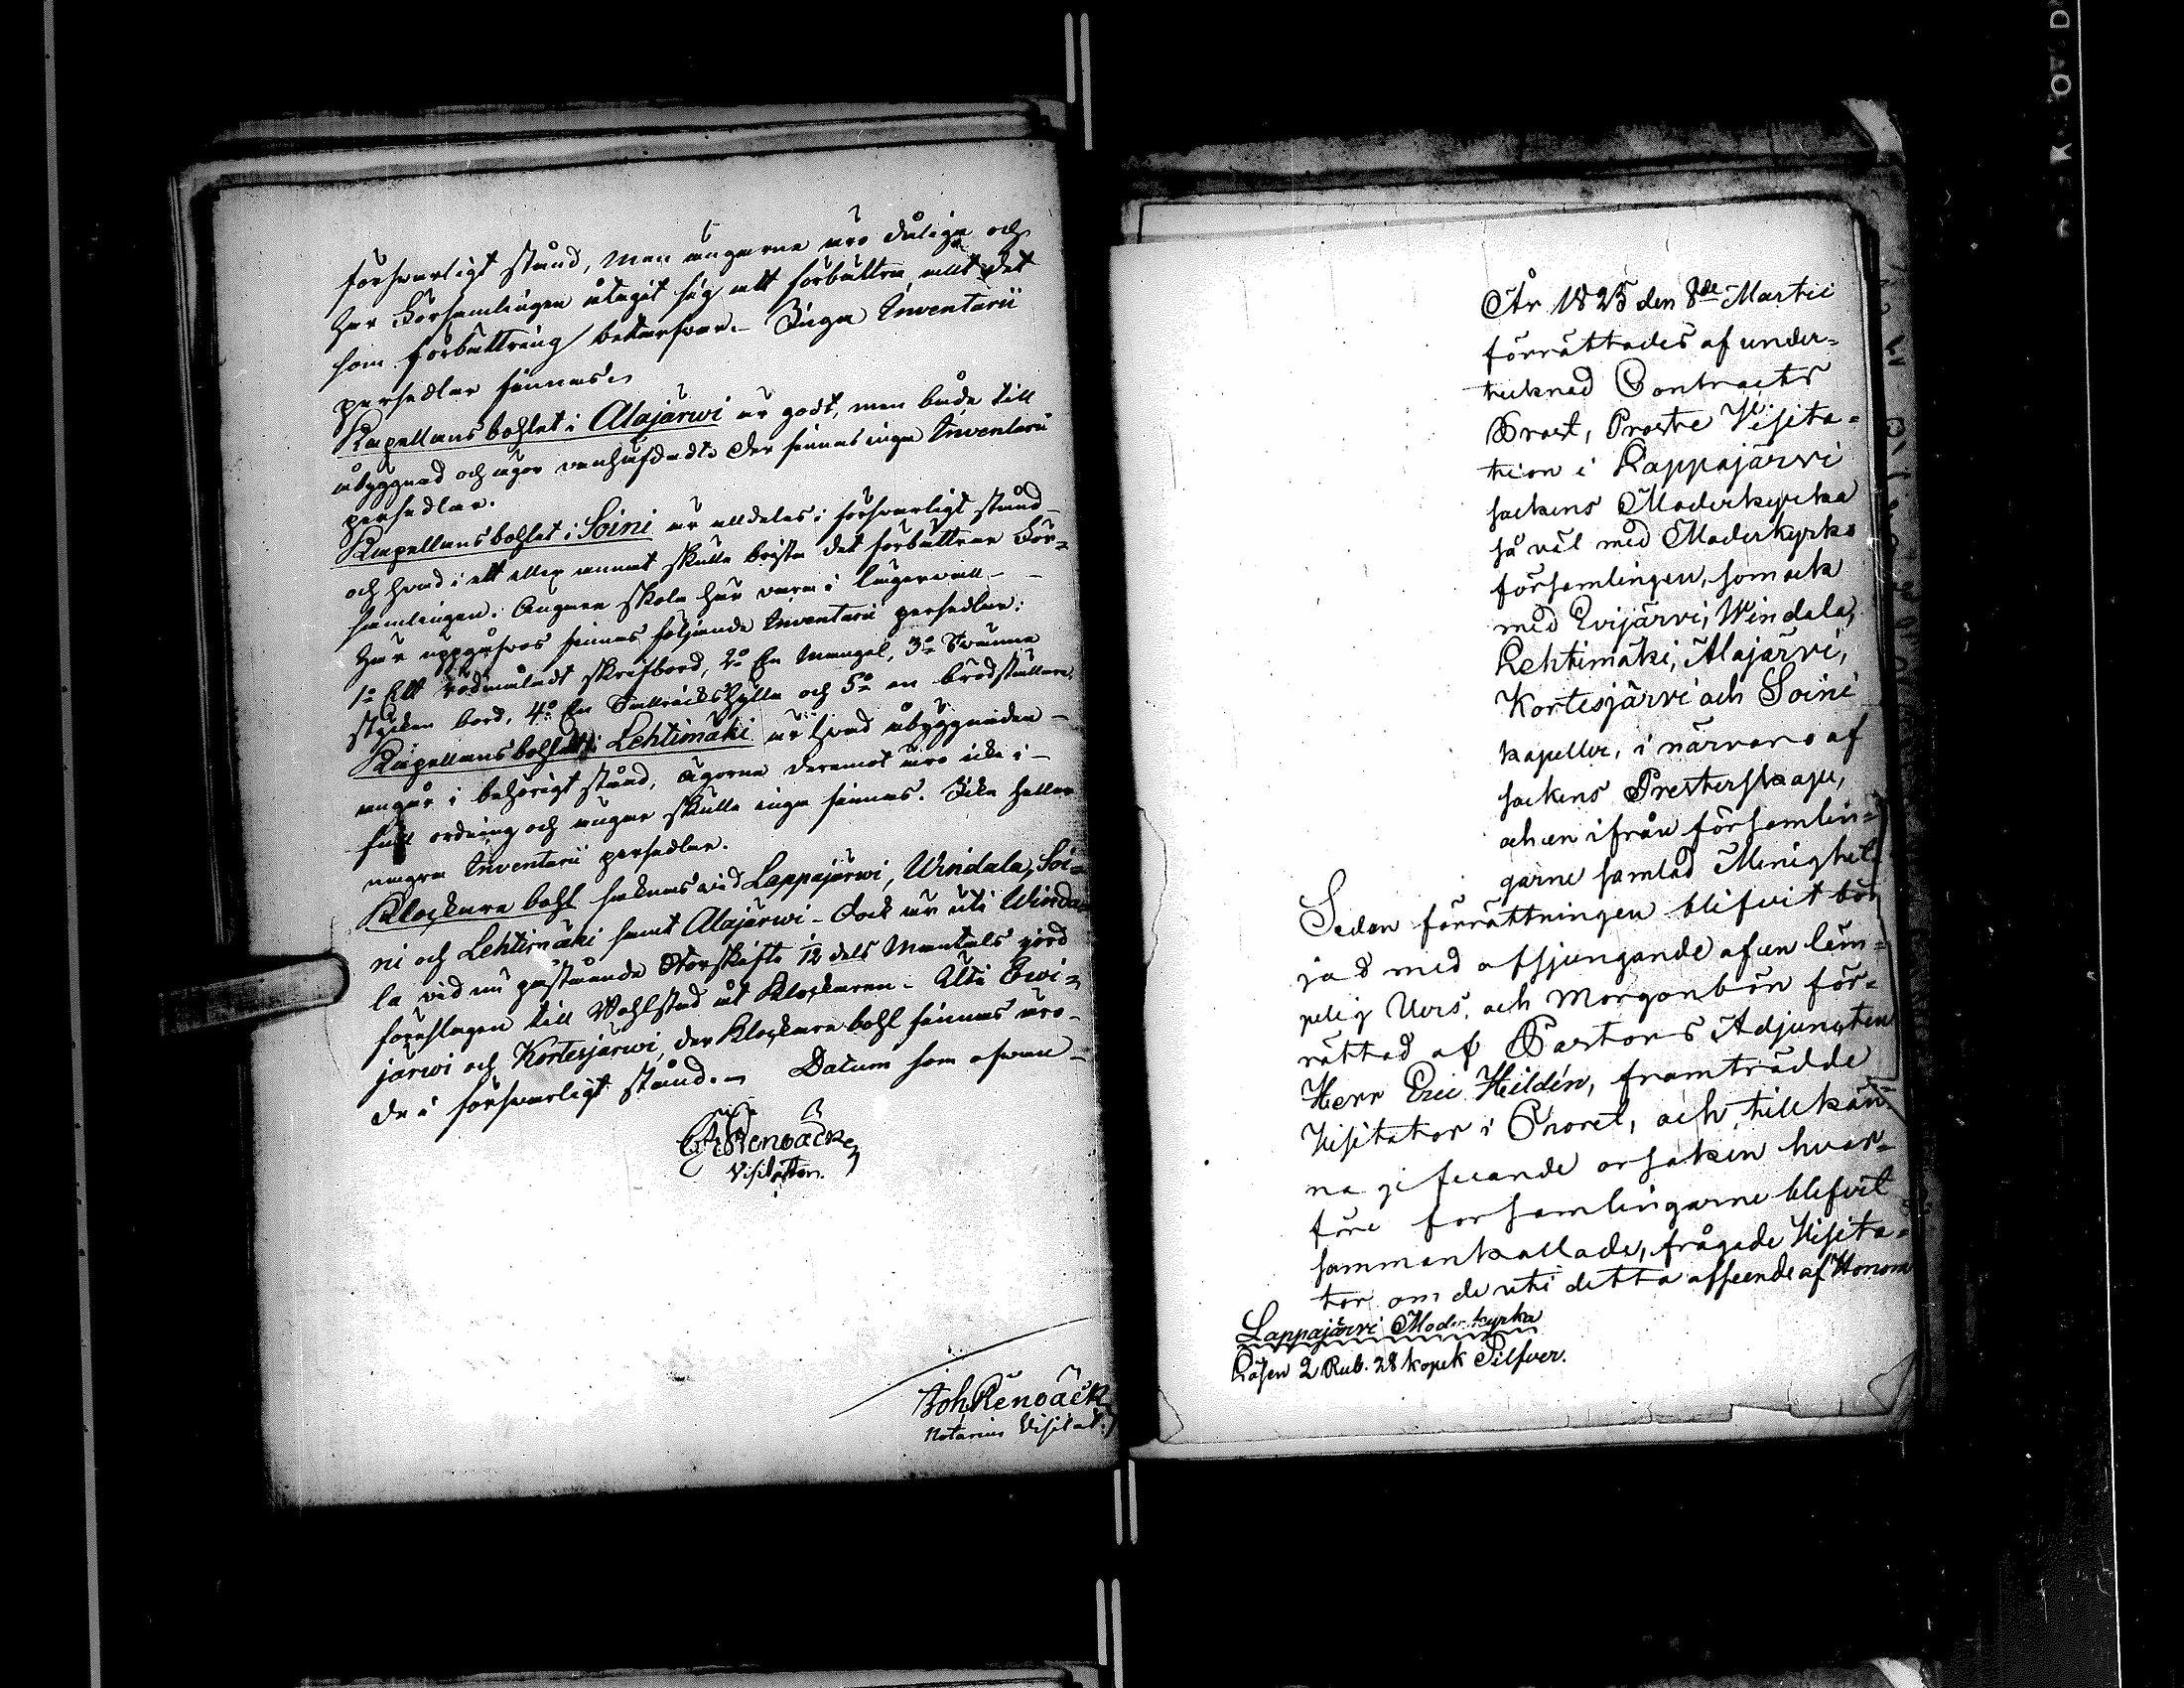 försvarligt stånd, men ängarne äro dålige och
har Församlingen åtagit sig att förbättra allt det
som förbättring betarfvar. Inga Inventarii
persedlar finnas.
Kapellansbohlet i Alajärwi är godt, men både till
åbyggnad och ägor vanhäfdadt. Der finnas inga Inventarii
persedlar.
Kapellansbohlet i Soini är alldeles i försvarligt stånd
och hvad i ett eller annat skulle brista det förbättrar För-
samlingen. Ängarne skola här vara i lägervall
Här uppgåfvos finnas följande Inventarii persedlar:
1o Ett rödmåladt skrifbord, 2o En Mangel, 3o Tvänne
stycken bord, 4o En hylla och 5o en brödställare.
Kapellansbohlet i Lehtimäki är hvad åbyggnaden
angår i behörigt stånd, ägorne deremot äro icke i
full ordning och ängar skulle inga finnas. Icke heller
några Inventarii persedlar.
Klockare bohl saknas vid Lappajärwi, Windala, Soi-
ni och Lehtimäki samt Alajärwi - dock är uti Winda-
la vid nu påstående Storskifte 1/12 dels Mantals jord
föreslagen till Bohlstad åt Klockaren. Uti Ewi-
järwi och Kortesjärwi, der Klockare bohl finnas äro
de i försvarligt stånd. Datum som ofvan
Visitator.
Joh Renbäck
Notarius Visitat.
År 1825 den 8de Martii
förrättades af under-
tecknad Contracts
Prost, Proste Visita-
tion i Lappajärvi
sockens Moderkyrka
så väl med Moderkyrko
församlingen, som ock
med Evijärvi, Windala,
Lehtimäki, Alajärvi,
Kortesjärvi och Soini
kapeller, i närvaro af
sockens Presterskap,
och en ifrån församlin-
garne samlad Menighet
Sedan förrättningen blifvit bör-
jad med afsjungande af en läm-
pelig Vers, och Morgonbön för-
rättad af Pastors Adjuncten
Herr Eric Heldén, framträdde
Visitator i Choret, och, tillkän-
na gifvande orsaken hvar-
före församlingarne blifvit
sammankallade, frågade Visita-
tor om de uti detta afseende af Honom
Lappajärvi Moderkyrka
Lösen 2 Rub. 28 kopek Silfver.